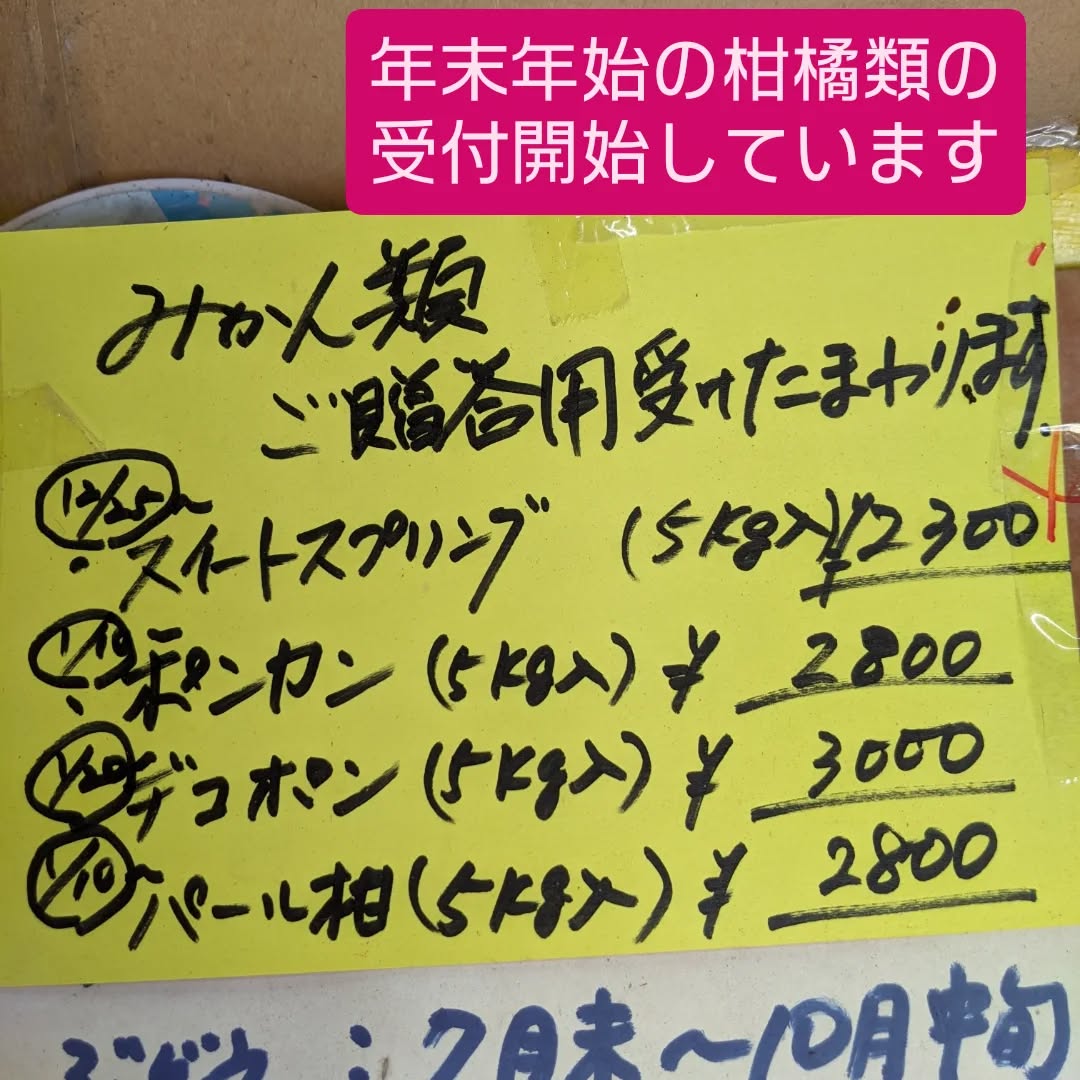 年末年始の柑橘類の
受付開始しています
みかん類
ご贈答用受けたまわります.
12/25~
・スイートスプリング (5kg入)¥2300
1/10~
・ポンカン (5kg入) ¥ 2800
1/20~
デコポン (5kg入) ¥ 3000
1/10~
パール柑 (5kg入) ¥ 2800
ブドウ : 7月末~10月中旬